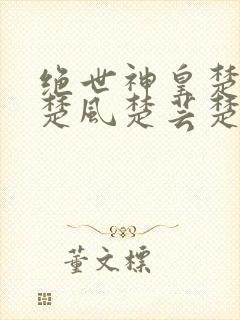 绝世神皇楚
楚风楚芸楚
董文标